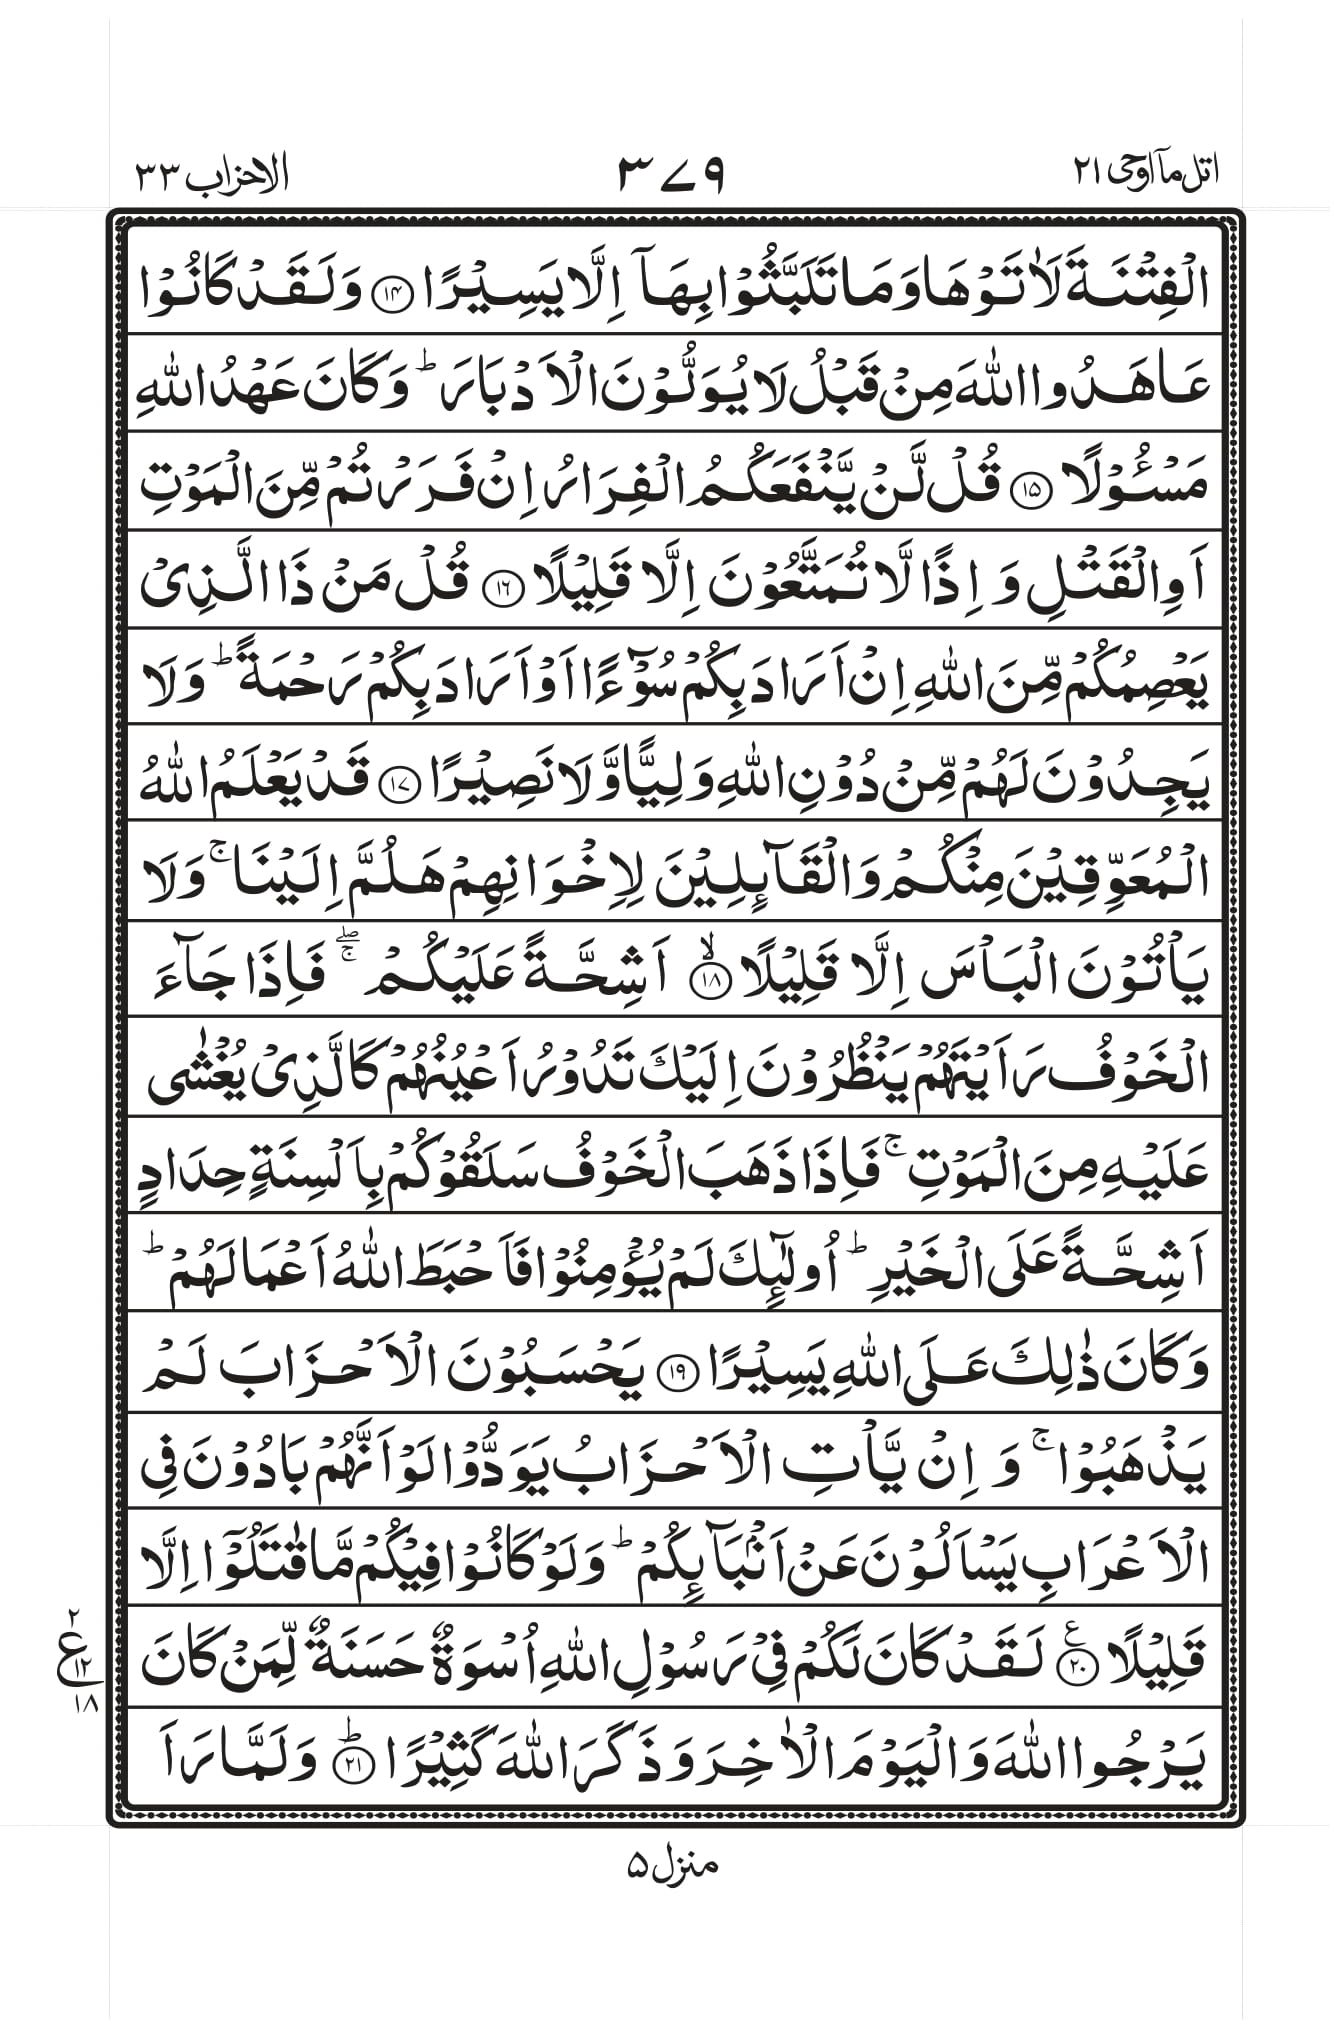 اتل مآ اوحی ۲۱
۳۷۹
الاحزاب ۳۳
الْفِتْنَةَ لَاٰتَوْهَا وَمَا تَلَبَّثُوْا بِهَآ اِلَّا يَسِيْرًا ﴿۱۴﴾ وَلَقَدْ كَانُوْا
عَاهَدُوا اللّٰهَ مِنْ قَبْلُ لَا يُوَلُّوْنَ الْاَدْبَارَ ؕ وَكَانَ عَهْدُ اللّٰهِ
مَسْـُٔوْلًا ﴿۱۵﴾ قُلْ لَّنْ يَّنْفَعَكُمُ الْفِرَارُ اِنْ فَرَرْتُمْ مِّنَ الْمَوْتِ
اَوِ الْقَتْلِ وَ اِذًا لَّا تُمَتَّعُوْنَ اِلَّا قَلِيْلًا ﴿۱۶﴾ قُلْ مَنْ ذَا الَّذِیْ
يَعْصِمُكُمْ مِّنَ اللّٰهِ اِنْ اَرَادَ بِكُمْ سُوْٓءًا اَوْ اَرَادَ بِكُمْ رَحْمَةً ؕ وَلَا
يَجِدُوْنَ لَهُمْ مِّنْ دُوْنِ اللّٰهِ وَلِيًّا وَّلَا نَصِيْرًا ﴿۱۷﴾ قَدْ يَعْلَمُ اللّٰهُ
الْمُعَوِّقِيْنَ مِنْكُمْ وَالْقَآئِلِيْنَ لِاِخْوَانِهِمْ هَلُمَّ اِلَيْنَا ۚ وَلَا
يَاْتُوْنَ الْبَاْسَ اِلَّا قَلِيْلًا ۙ﴿۱۸﴾ اَشِحَّةً عَلَيْكُمْ ۖۚ فَاِذَا جَآءَ
الْخَوْفُ رَاَيْتَهُمْ يَنْظُرُوْنَ اِلَيْكَ تَدُوْرُ اَعْيُنُهُمْ كَالَّذِیْ يُغْشٰی
عَلَيْهِ مِنَ الْمَوْتِ ۚ فَاِذَا ذَهَبَ الْخَوْفُ سَلَقُوْكُمْ بِاَلْسِنَةٍ حِدَادٍ
اَشِحَّةً عَلَی الْخَيْرِ ؕ اُولٰٓئِكَ لَمْ يُؤْمِنُوْا فَاَحْبَطَ اللّٰهُ اَعْمَالَهُمْ ؕ
وَكَانَ ذٰلِكَ عَلَی اللّٰهِ يَسِيْرًا ﴿۱۹﴾ يَحْسَبُوْنَ الْاَحْزَابَ لَمْ
يَذْهَبُوْا ۚ وَ اِنْ يَّاْتِ الْاَحْزَابُ يَوَدُّوْا لَوْ اَنَّهُمْ بَادُوْنَ فِی
الْاَعْرَابِ يَسْاَلُوْنَ عَنْ اَنْۢبَآئِكُمْ ؕ وَلَوْ كَانُوْا فِيْكُمْ مَّا قٰتَلُوْٓا اِلَّا
قَلِيْلًا ﴿۲۰﴾ع لَقَدْ كَانَ لَكُمْ فِیْ رَسُوْلِ اللّٰهِ اُسْوَةٌ حَسَنَةٌ لِّمَنْ كَانَ
۲
ع
۱۲
۱۸
يَرْجُوا اللّٰهَ وَالْيَوْمَ الْاٰخِرَ وَذَكَرَ اللّٰهَ كَثِيْرًا ؕ﴿۲۱﴾ وَلَمَّا رَاَ
منزل ۵